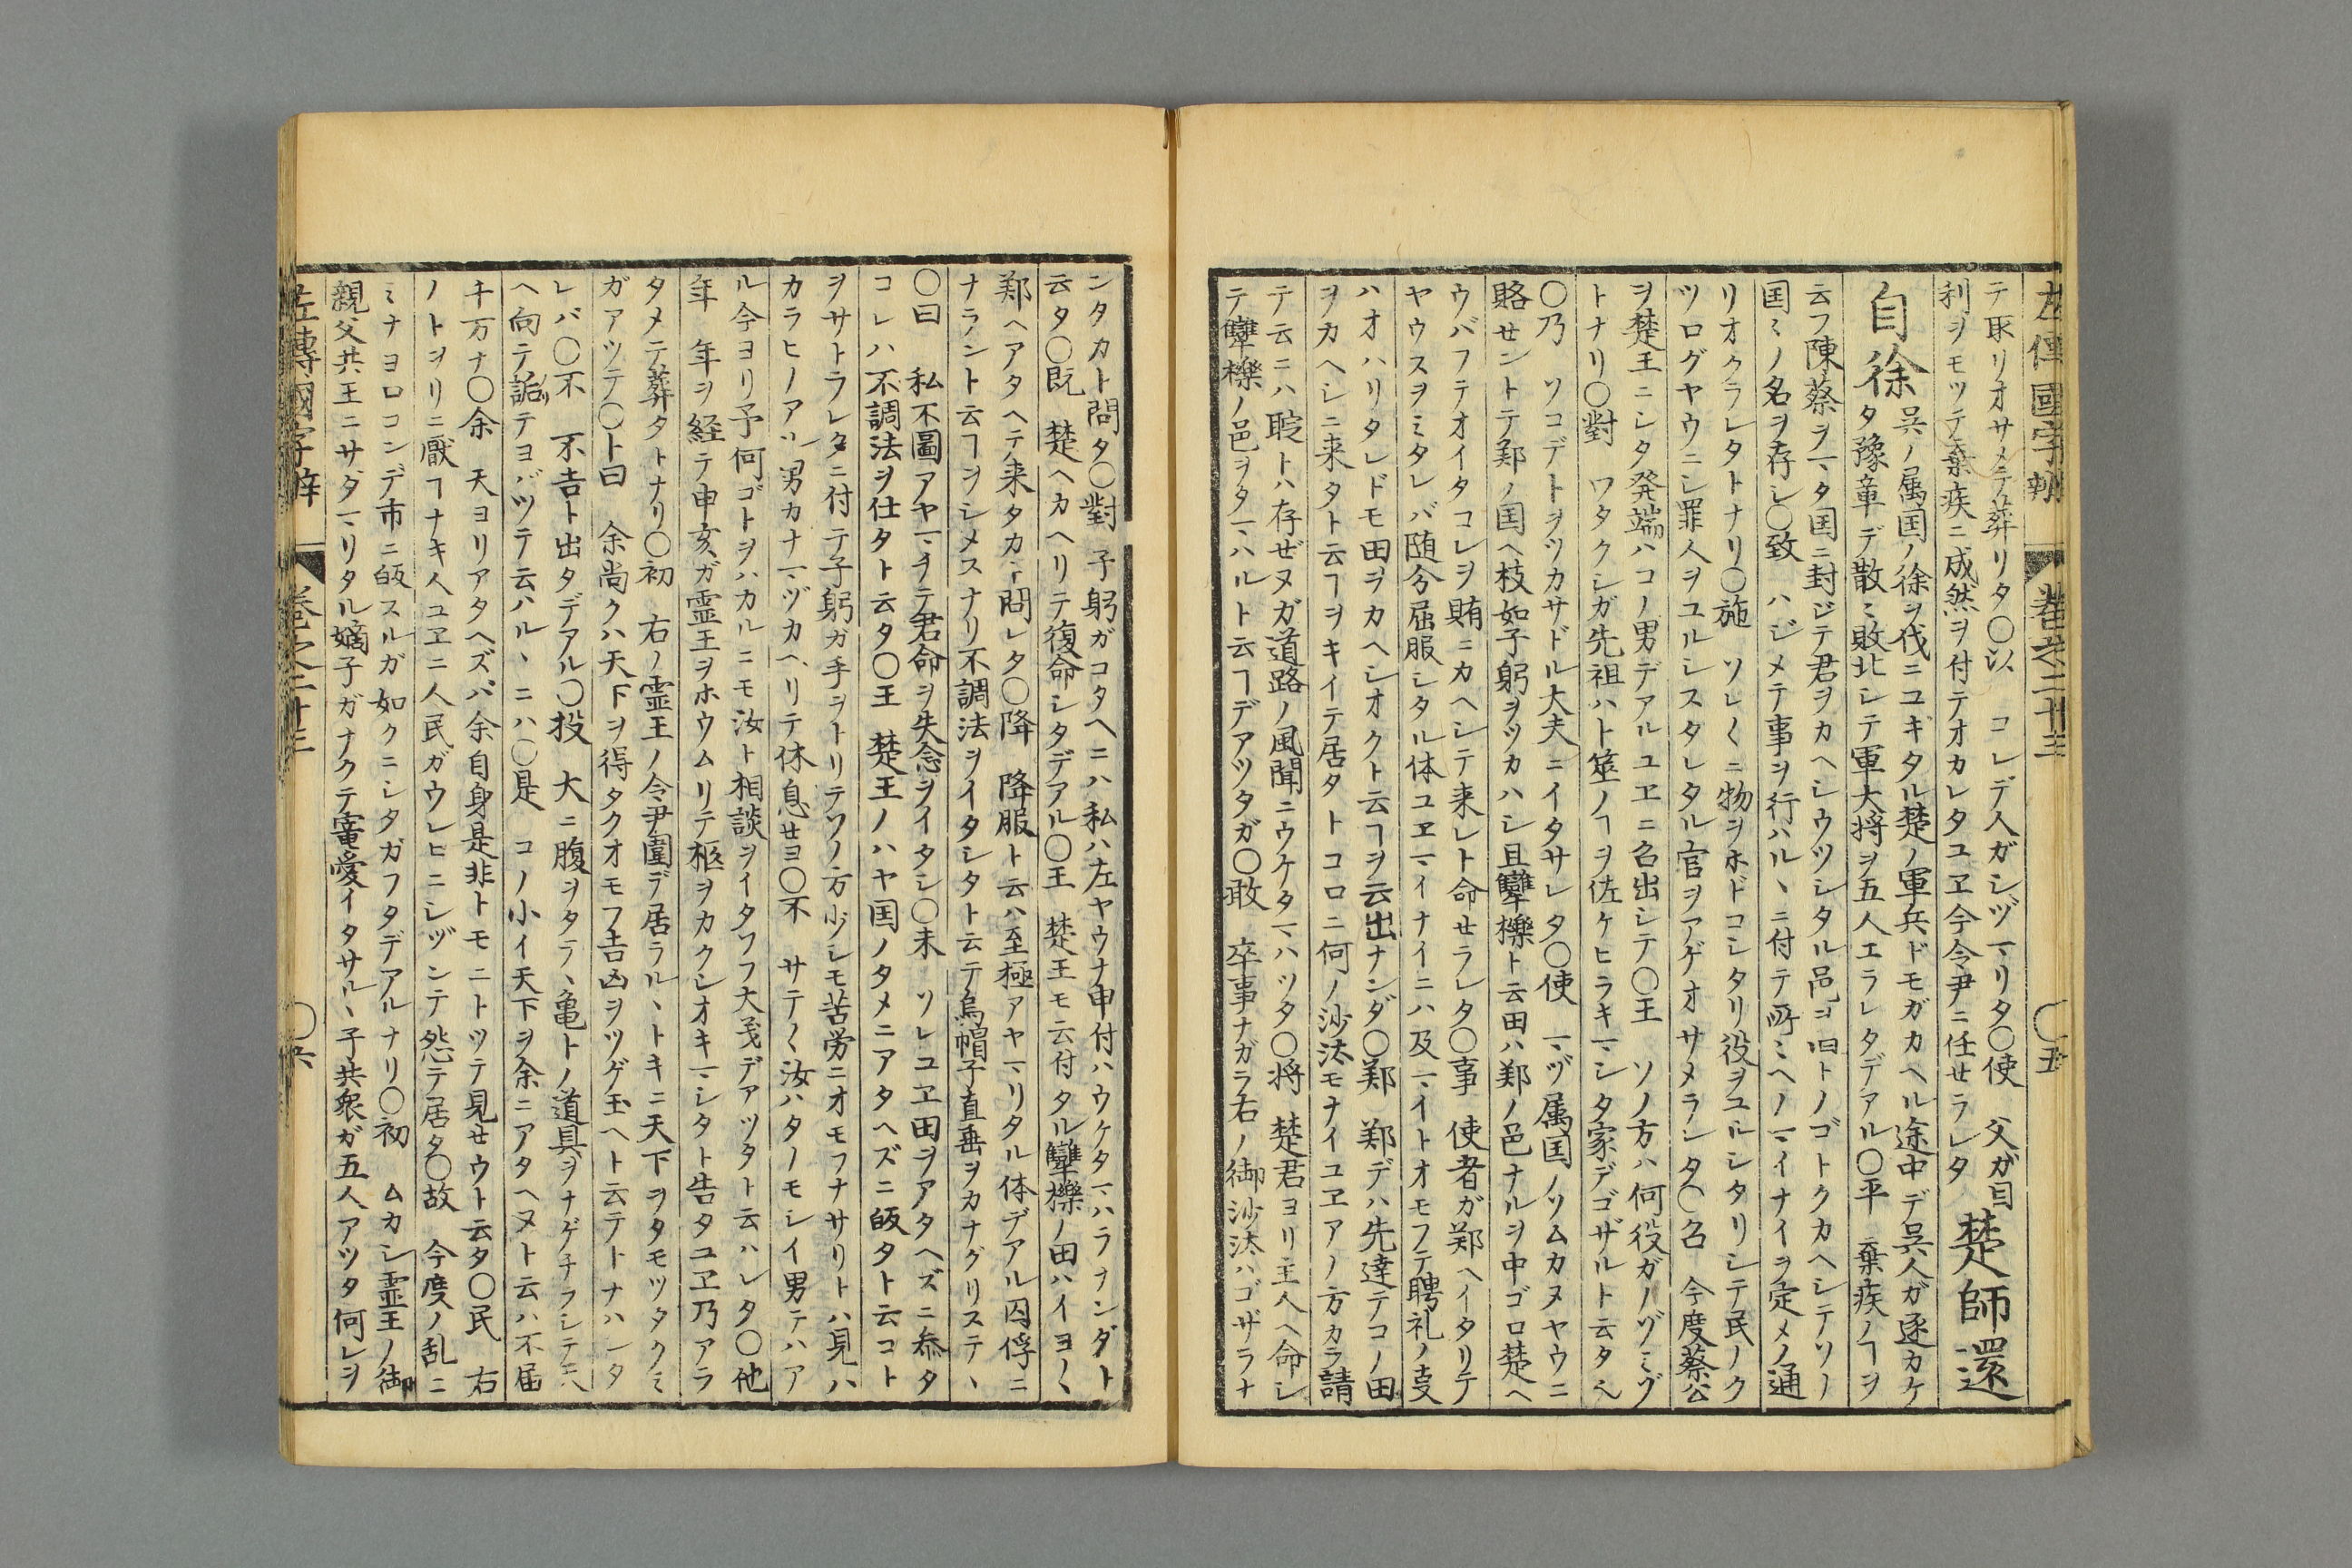 左傳國字辨 巻之二十三 〇五
テ取リオサメテ葬リタ〇以 コレデ人ガシヅマリタ〇使 父ガ目
利ヲモツテ棄疾ニ成然ヲ付テオカレタユヱ今令尹ニ任セラレタ 楚師還
自徐 呉ノ属国ノ徐ヲ伐ニユギタル楚ノ軍兵ドモガカヘル途中デ呉人ガ逐カケ
タ豫章デ散ミ敗北シテ軍大将ヲ五人エラレタデアル〇平 棄疾ノヿヲ
云フ陳蔡ヲマタ国ニ封ジテ君ヲカヘシウツシタル邑ヲ旧トノゴトクカヘシテソノ
国ミノ名ヲ存シ〇致 ハジメテ事ヲ行ハルヽニ付テ所ミヘノマイナイヲ定メノ通
リオクラレタトナリ〇施 ソレ〱ニ物ヲホドコシタリ役ヲユルシタリシテ民ノク
ツログヤウニシ罪人ヲユルシスタレタル官ヲアゲオサメラレタ〇名 今度蔡公
ヲ楚王ニシタ発端ハコノ男デアルユヱニ召出シテ〇王 ソノ方ハ何役ガノゾミゾ
トナリ〇對 ワタクシガ先祖ハト筮ノヿヲ佐ケヒラキマシタ家デゴザルト云タヘ
〇乃 ソコデトヲツカサドル大夫ニイタサレタ〇使 マヅ属国ノソムカヌヤウニ
賂セントテ鄭ノ国ヘ枝如子躬ヲツカハシ且犨櫟ト云田ハ鄭ノ邑ナルヲ中ゴロ楚ヘ
ウバフテオイタコレヲ賄ニカヘシテ来レト命セラレタ〇事 使者ガ鄭ヘイタリテ
ヤウスヲミタレバ随分屈服シタル体ユヱマイナイニハ及マイトオモフテ聘礼ノ支
ハオハリタレドモ田ヲカヘシオクト云ヿヲ云出ナンダ〇鄭 鄭デハ先達テコノ田
ヲカヘシニ来タト云ヿヲキイテ居タトコロニ何ノ沙汰モナイユヱアノ方カラ請
テ云ニハ聢トハ存ゼヌガ道路ノ風聞ニウケタマハツタ〇将 楚君ヨリ王人ヘ命シ
テ犨櫟ノ邑ヲタマハルト云ヿデアツタガ〇敢 卒事ナガラ右ノ御沙汰ハゴザラナ
ンタカト問タ〇對 子躬ガコタヘニハ私ハ左ヤウナ申付ハウケタマハラナンダト
云タ〇既 楚ヘカヘリテ復命シタデアル〇王 楚王モ云付タル犨櫟ノ田ハイヨ〱
鄭ヘアタヘテ来タカト問レタ〇降 降服ト云ハ至極アヤマリタル体デアル囚俘ニ
ナラント云ヿヲシメスナリ不調法ヲイタシタト云テ烏帽子直垂ヲカナグリステヽ
〇曰 私不圖アヤマヲテ君命ヲ失念ヲイタシ〇未 ソレユヱ田ヲアタヘズニ叅タ
コレハ不調法ヲ仕タト云タ〇王 楚王ノハヤ国ノタメニアタヘズニ皈タト云コト
ヲサトラレタニ付テ子躬ガ手ヲトリテソノ方少シモ苦労ニオモフナサリトハ見ハ
カラヒノアル男カナマヅカヘリテ休息セヨ〇不 サテ〱汝ハタノモシイ男テハア
ル今ヨリ予何ゴトヲハカルニモ汝ト相談ヲイタフフ大義デアツタト云ハレタ〇他
年 年ヲ経テ申亥ガ霊王ヲホウムリテ柩ヲカクシオキマシタト告タユヱ乃アラ
タメテ葬タトナリ〇初 右ノ霊王ノ令尹圍デ居ラルヽトキニ天下ヲタモツタクミ
ガアツテ〇卜曰 余尚クハ天下ヲ得タクオモフ吉凶ヲツゲ玉ヘト云テトナハシタ
レバ〇不 不吉ト出タデアル〇投 大ニ腹ヲタテヽ亀トノ道具ヲナゲチフシテ天
ヘ向テ詬リテヨバツテ云ハルヽニハ〇是 コノ小イ天下ヲ余ニアタヘヌト云ハ不届
千万ナ〇余 天ヨリアタヘズバ余自身是非トモニトツテ見セウト云タ〇民 右
ノトヲリニ厭ヿナキ人ユヱニ人民ガウレヒニシヅンテ怨テ居タ〇故 今度ノ乱ニ
ミナヨロコンデ市ニ皈スルガ如クニシタガフタデアルナリ〇初 ムカシ霊王ノ御
親父共王ニサダマリタル嫡子ガナクテ寵愛イタサルヽ子共衆ガ五人アツタ何レヲ
左傳國字辨 巻之二十三 〇六